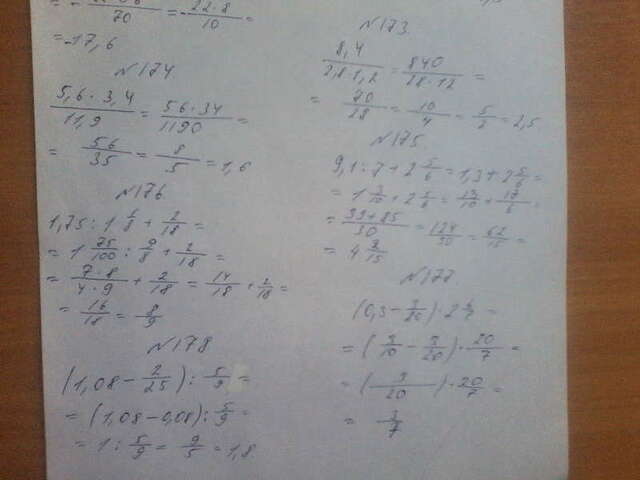 70 = - 22·8/10 =
= -17,6
№174
5,6·3,4/11,9 = 56·34/1190 =
= 56/35 = 8/5 = 1,6
№176
1,75 : 1 1/8 + 2/18 =
= 1 75/100 : 9/8 + 2/18 =
= 7·8/4·9 + 2/18 = 14/18 + 2/18 =
= 16/18 = 8/9
№178
(1,08 - 2/25) : 5/9 =
= (1,08 - 0,08) : 5/9 =
= 1 : 5/9 = 9/5 = 1,8
№173
8,4/2,8·1,2 = 840/28·12 =
= 70/28 = 10/4 = 5/2 = 2,5
№175
9,1 : 7 + 2 5/6 = 1,3 + 2 5/6 =
= 1 3/10 + 2 5/6 = 13/10 + 17/6 =
= 39+85/30 = 124/30 = 62/15 =
= 4 2/15
№177
(0,3 - 3/20) · 2 6/7 =
= (3/10 - 3/20) · 20/7 =
= (3/20) · 20/7 =
= 3/7